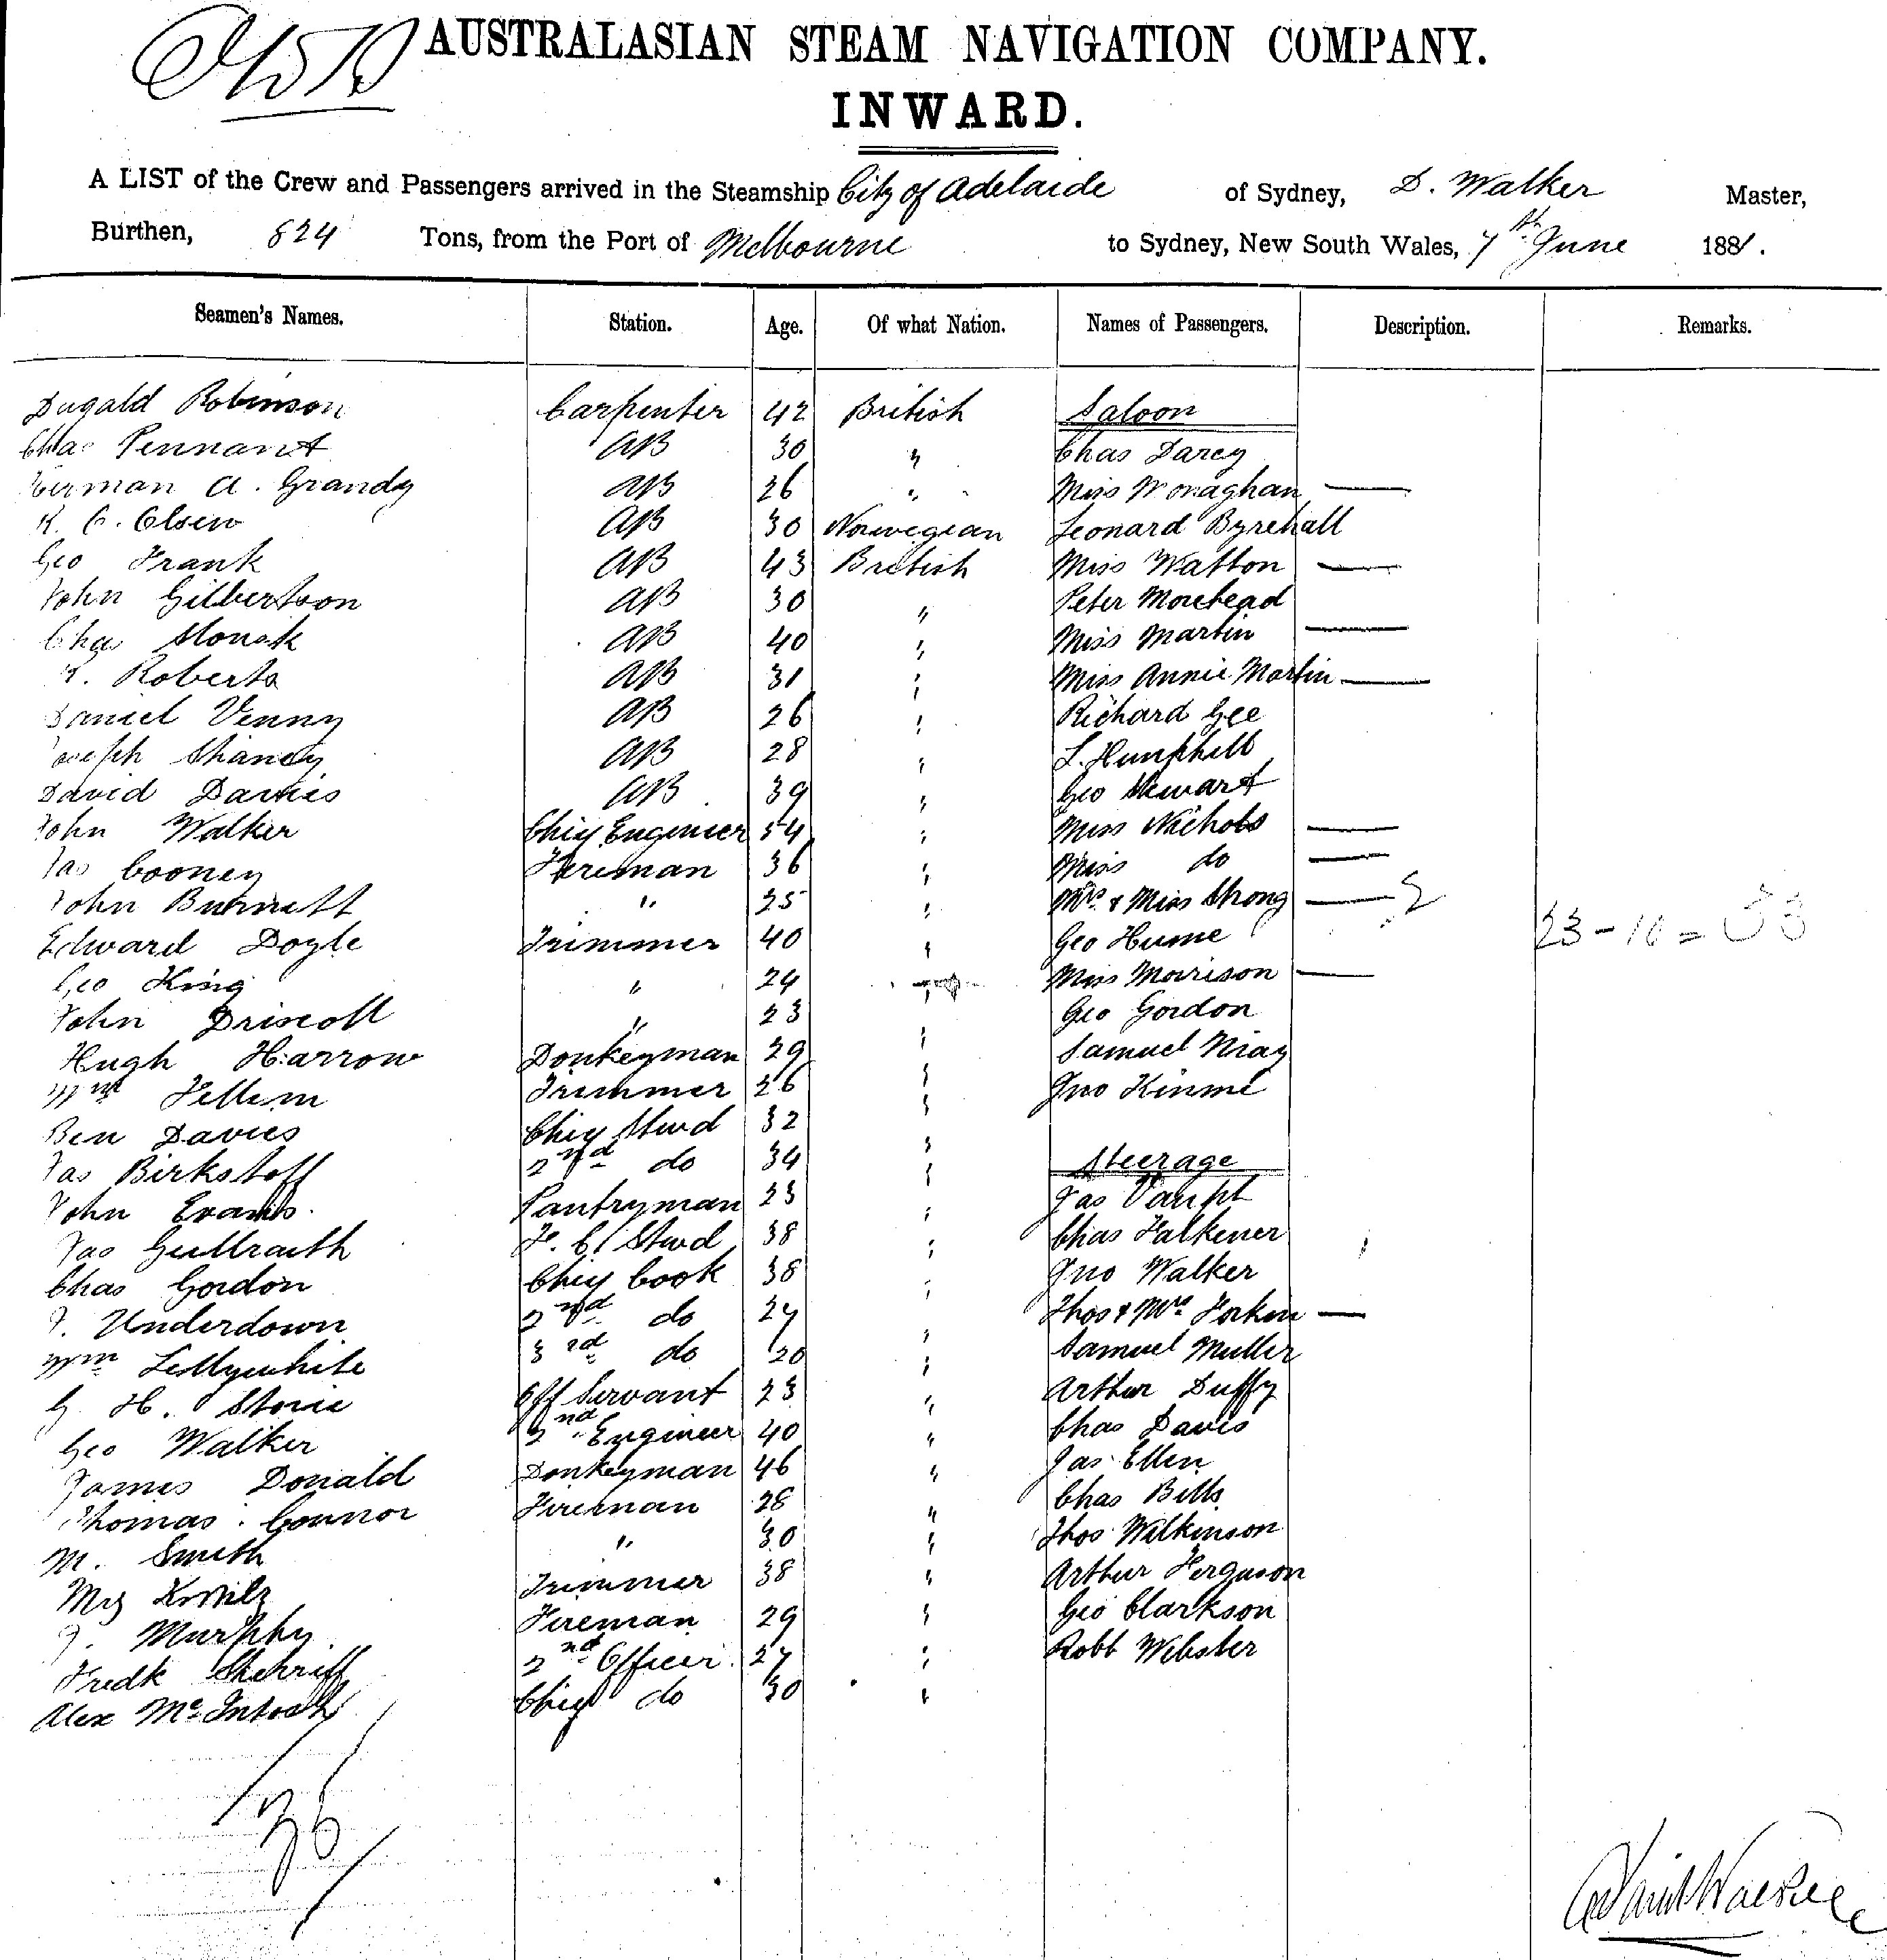 AUSTRALASIAN STEAM NAVIGATION COMPANY.
INWARD.
A LIST of the Crew and Passengers arrived in the Steamship City of Adelaide of Sydney, D. Walker Master,
Burthen, 824 Tons, from the Port of Melbourne to Sydney, New South Wales, 7th June 1881.
Seamen's Names. Station. Age. Of what Nation. Names of Passengers. Description. Remarks.
Dugald Robinson Carpenter 42 British Saloon
Chas Pennant AB 30 " Chas Darcy
Herman A. Grandy AB 26 " Miss Monaghan —
K. C. Olsen AB 30 Norwegian Leonard Byrehall
Geo Frank AB 43 British Miss Watton —
John Gilbertson AB 30 " Peter Morehead
Chas AB 40 " Miss Martin —
Roberts AB 31 " Miss Annie Martin —
Daniel Venny AB 26 " Richard Gee
Joseph Shandy AB 28 " L. Hemphill
David Davies AB 39 " Geo Stewart
John Walker Chief Engineer 54 " Miss Nichols —
Jas Cooney Fireman 36 " Miss do —
John Burnett " 25 " Mrs & Miss Strong — 2
Edward Doyle Trimmer 40 " Geo Hume 23 - 10 = 33
Geo King " 24 " Miss Morrison —
John Driscoll " 23 " Geo Gordon
Hugh Harrow Donkeyman 29 " Samuel May
Wm Fellem Trimmer 26 " Jno Kinme
Ben Davies Chief Stwd 32 "
Jas Birkstoff 2nd do 34 " Steerage
John Evans Pantryman 23 " Jas
Jas F. C. Stwd 38 " Chas Falkener
Chas Gordon Chief Cook 38 " Jno Walker
Underdown 2nd do 24 " Thos & Mrs —
Wm Lillywhite 3rd do 20 " Samuel Muller
G. H. Storie Off Servant 23 " Arthur Duffy
Geo Walker 2nd Engineer 40 " Chas Davis
James Donald Donkeyman 46 " Jas Ellen
Thomas Connor Fireman 28 " Chas Bills
M. Smith " 30 " Thos Wilkinson
Trimmer 38 " Arthur Ferguson
J. Murphy Fireman 29 " Geo Clarkson
Fredk Sherriff 2nd Officer 27 " Robt Webster
Alex McIntosh Chief do 30 "
36
David Walker